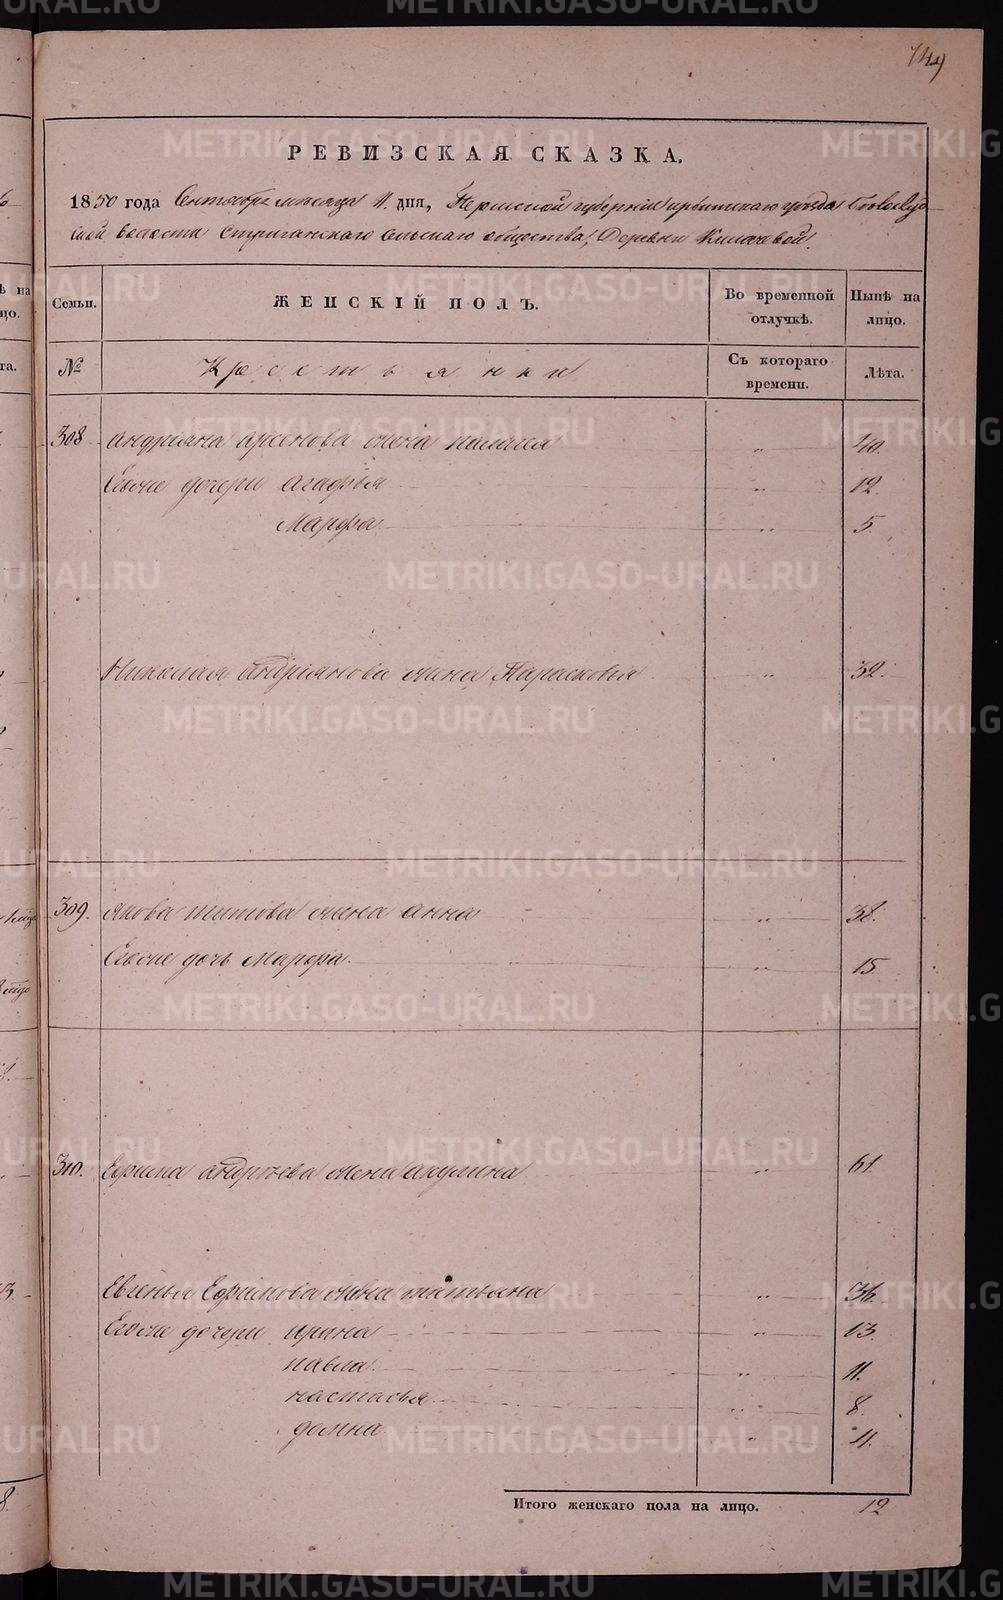 749
РЕВИЗСКАЯ СКАЗКА.
1850 года Сентября месяца 11 дня, Пермской губернии ирбитского уезда
ской волости Стриганскаго сельскаго общества, Деревни Кипачевой.
Семьи. ЖЕНСКІЙ ПОЛЪ. Во временной отлучкѣ. Нынѣ на лицо.
№ Крестьянки Съ котораго времени. Лѣта.
308 андрияна арсенова жена 40.
Егоже дочери агафья " 12.
Марфа " 5.
Николая андриянова жена Парасковья " 32.
309. якова титова жена анна " 38.
Егоже дочь Марфа. " 15.
310. Ефима андреева жена акулина " 61.
Евгенья Ефимова жена татьяна " 36.
Егоже дочери ирина " 13.
павла " 11.
настасья " 8.
домна " 4.
Итого женскаго пола на лицо. 12
METRIKI.GASO-URAL.RU